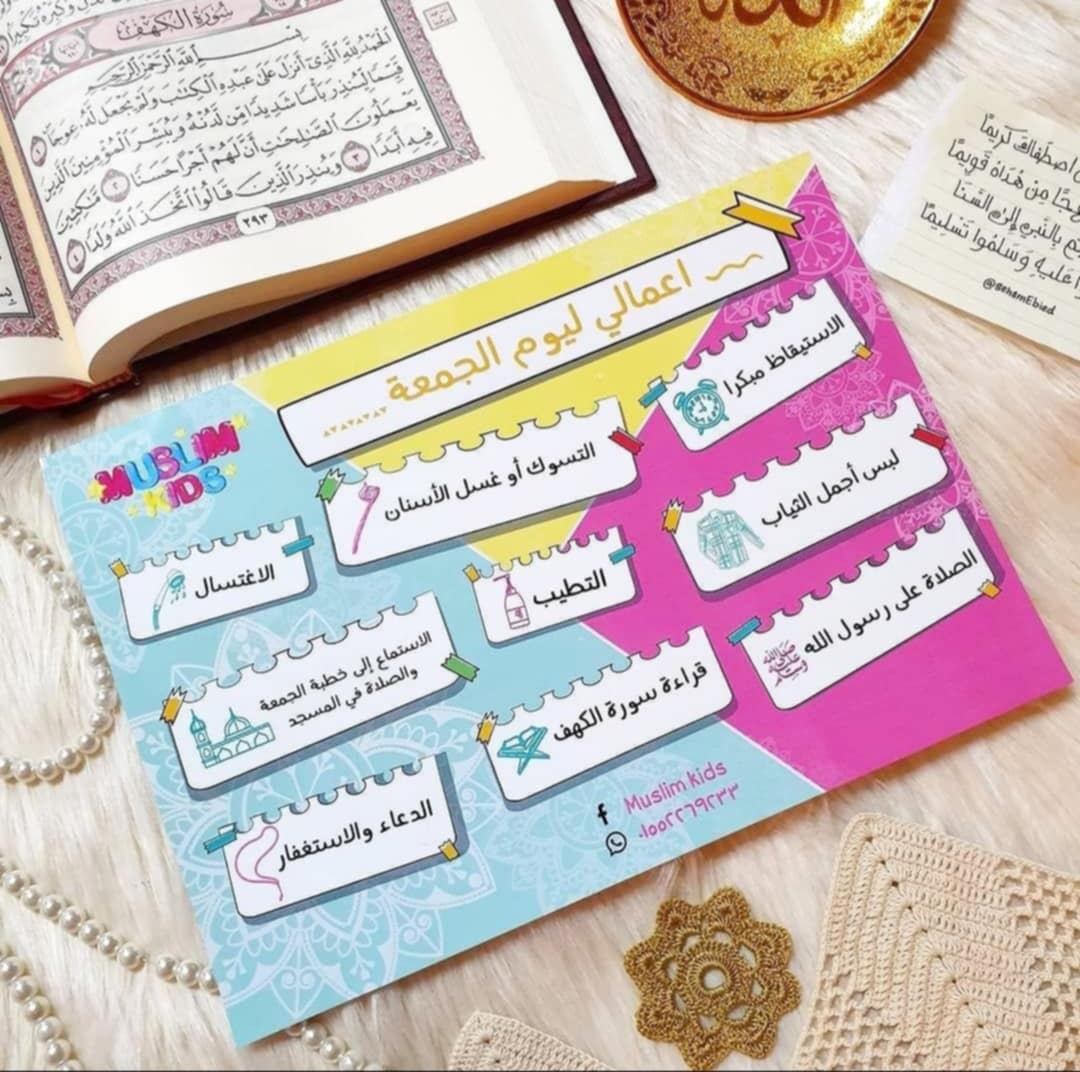 سورة الكهف
بسم الله الرحمن الرحيم
الحمد لله الذي أنزل على عبده الكتب ولم يجعل له عوجا ١
قيما لينذر بأسا شديدا من لدنه ويبشر المؤمنين الذين
يعملون الصلحت أن لهم أجرا حسنا ٢ مكثين
فيه أبدا ٣ وينذر الذين قالوا اتخذ الله ولدا ٤
٢٩٣
الله
اصطفاك كريما
من هداه قويما
بالنبي إلى السنا
عليه وسلموا تسليما
@SehamEbied
اعمالي ليوم الجمعة
MUSLIM
KIDS
الاستيقاظ مبكرا
التسوك أو غسل الأسنان
لبس أجمل الثياب
الاغتسال
التطيب
الصلاة على رسول الله ﷺ
الاستماع إلى خطبة الجمعة
والصلاة في المسجد
قراءة سورة الكهف
الدعاء والاستغفار
Muslim kids
٠١٥٥٢٢٦٩٢٣٣